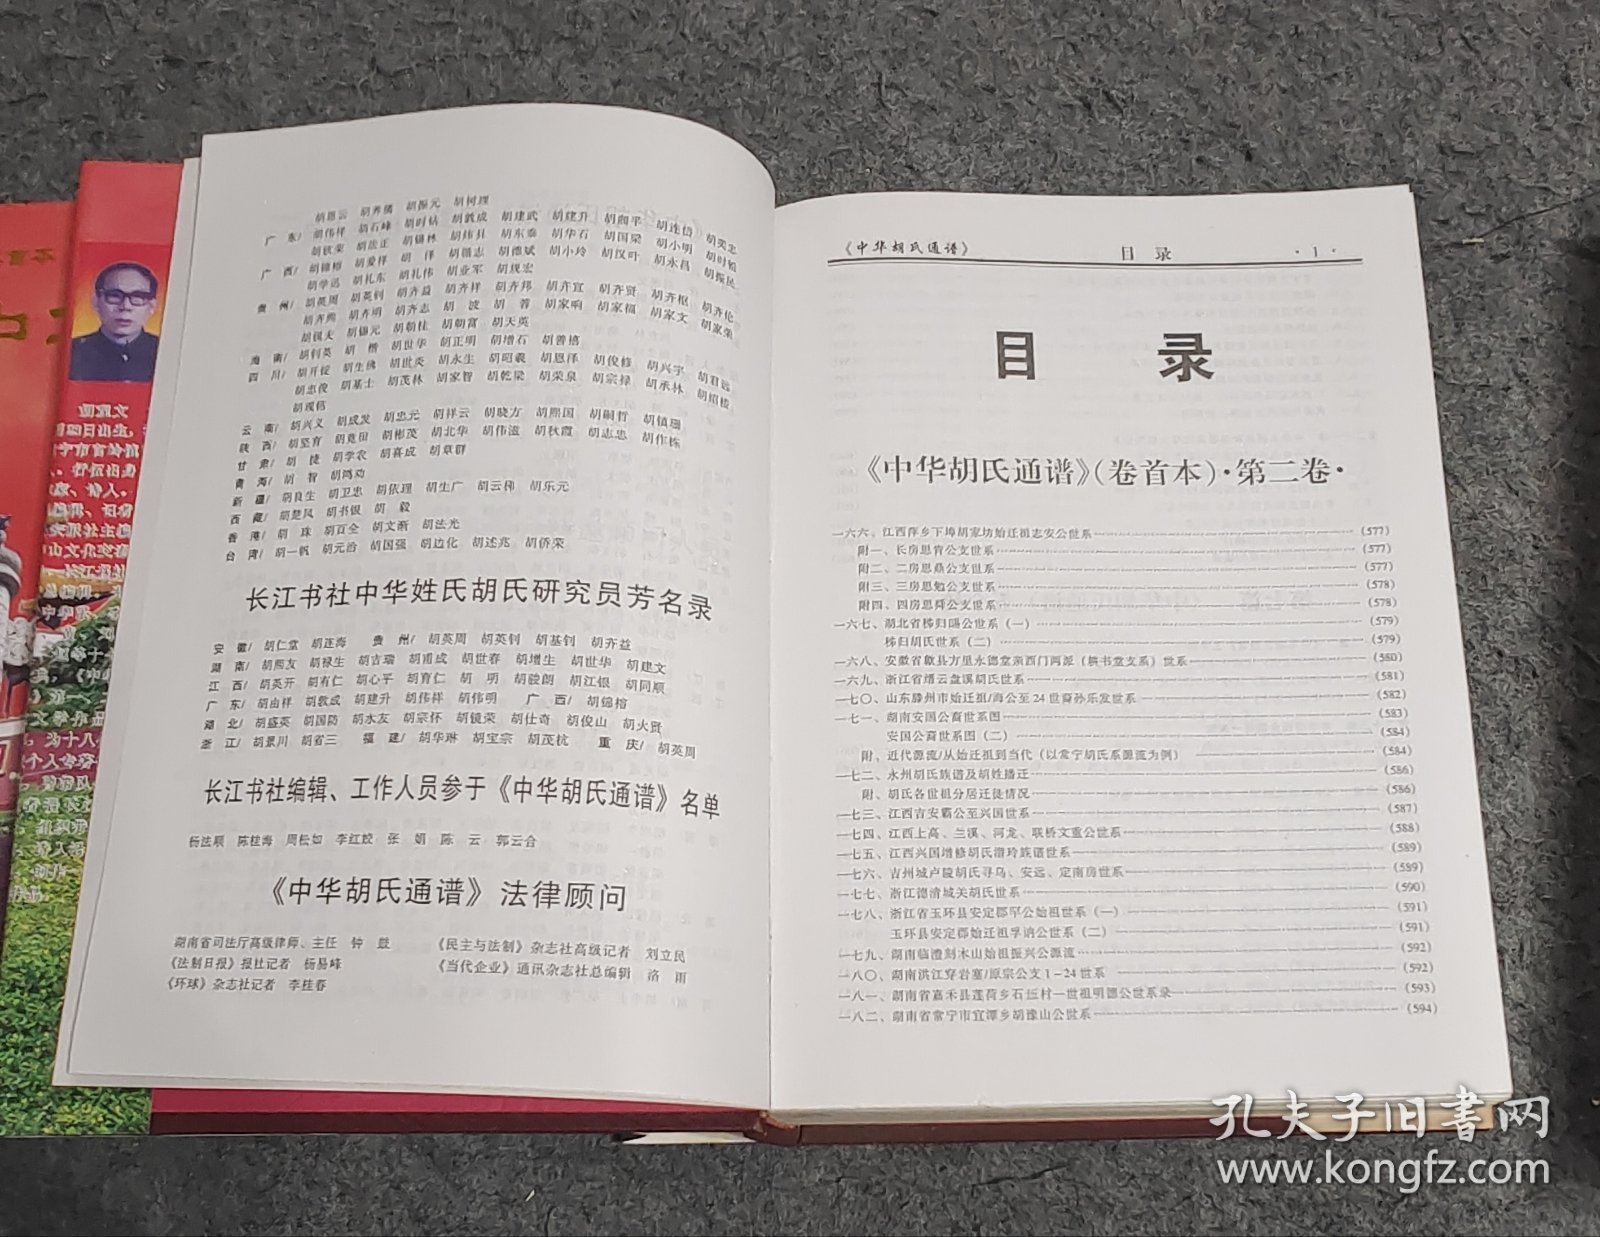 胡恩云 胡养儒 胡振元 胡树理
广 东/ 胡伟样 胡石峰 胡时钻 胡敦成 胡建武 胡建升 胡陶平 胡连岱 胡奕忠
胡钦荣 胡法正 胡锡林 胡炜县 胡东泰 胡华石 胡国梁 胡小明 胡时姣
广 西/ 胡锦榕 胡爱祥 胡 洋 胡循志 胡德斌 胡小玲 胡汉叶 胡永昌 胡振民
胡学迅 胡礼东 胡礼伟 胡业军 胡规宏
贵 州/ 胡英周 胡英钊 胡齐益 胡齐祥 胡齐邦 胡齐宣 胡齐贤 胡齐枢 胡齐伦
胡齐鸣 胡齐明 胡齐志 胡 波 胡 蓉 胡家响 胡家福 胡家文 胡家荣
胡国天 胡锦元 胡朝柱 胡朝富 胡天英
海 南/ 胡钊英 胡 楷 胡世华 胡正明 胡增石 胡善禧
四 川/ 胡开锭 胡生佛 胡世炎 胡永生 胡昭羲 胡恩泽 胡俊修 胡兴宇 胡君远
胡忠俊 胡基士 胡茂林 胡家智 胡乾梁 胡荣泉 胡宗禄 胡承林 胡绍楼
胡观铭
云 南/ 胡兴义 胡成发 胡忠元 胡祥云 胡晓方 胡熙国 胡嗣哲 胡镇珊
陕 西/ 胡坚育 胡竟田 胡彬茂 胡北华 胡伟滋 胡秋霞 胡志忠 胡作栋
甘 肃/ 胡 健 胡学农 胡喜成 胡章群
青 海/ 胡 智 胡鸿动
新 疆/ 胡良生 胡卫忠 胡依理 胡生广 胡云伟 胡乐元
西 藏/ 胡楚凤 胡书银 胡 毅
香 港/ 胡 珠 胡百全 胡文渐 胡法光
台 湾/ 胡一帆 胡元治 胡国强 胡边化 胡述兆 胡侨荣
长江书社中华姓氏胡氏研究员芳名录
安 徽/ 胡仁堂 胡连海 贵 州/ 胡英周 胡英钊 胡基钊 胡齐益
湖 南/ 胡熙友 胡禄生 胡吉瑞 胡甫成 胡世春 胡增生 胡世华 胡建文
江 西/ 胡英开 胡有仁 胡心平 胡育仁 胡 明 胡骏朗 胡江银 胡同顺
广 东/ 胡由祥 胡敦成 胡建升 胡伟祥 胡伟明 广 西/ 胡锦榕
湖 北/ 胡盛英 胡国防 胡水友 胡宗怀 胡镜荣 胡仕奇 胡俊山 胡大贤
浙 江/ 胡景川 胡省三 福 建/ 胡华琳 胡宝宗 胡茂杭 重 庆/ 胡英周
长江书社编辑、工作人员参于《中华胡氏通谱》名单
杨法顺 陈桂海 周松如 李红姣 张 娟 陈 云 郭云合
《中华胡氏通谱》法律顾问
湖南省司法厅高级律师、主任 钟 鼓 《民主与法制》杂志社高级记者 刘立民
《法制日报》报社记者 杨易峰 《当代企业》通讯杂志社总编辑 洛 雨
《环球》杂志社记者 李桂春
《中华胡氏通谱》 目 录 ·1·
目 录
《中华胡氏通谱》(卷首本)·第二卷·
一六六、江西萍乡下埠胡家坊始迁祖志安公世系 (577)
附一、长房思胄公支世系 (577)
附二、二房思鼎公支世系 (577)
附三、三房思勉公支世系 (578)
附四、四房思舜公支世系 (578)
一六七、湖北省秭归陽公世系(一) (579)
秭归胡氏世系(二) (579)
一六八、安徽省歙县方里永德堂亲西门两派(耕书堂支系)世系 (580)
一六九、浙江省缙云盘溪胡氏世系 (581)
一七〇、山东滕州市始迁祖/海公至24世裔孙乐发世系 (582)
一七一、湖南安国公裔世系图 (583)
安国公裔世系图(二) (584)
附、近代源流/从始迁祖到当代(以常宁胡氏系源流为例) (584)
一七二、永州胡氏族谱及胡姓播迁 (586)
附、胡氏各世祖分居迁徙情况 (586)
一七三、江西吉安霸公至兴国世系 (587)
一七四、江西上高、兰溪、河龙、联桥文重公世系 (588)
一七五、江西兴国增修胡氏潜玲族谱世系 (589)
一七六、吉州城卢陵胡氏寻乌、安远、定南房世系 (589)
一七七、浙江德清城关胡氏世系 (590)
一七八、浙江省玉环县安定郡罕公始祖世系(一) (591)
玉环县安定郡始迁祖孚讷公世系(二) (591)
一七九、湖南临澧刻木山始祖振兴公源流 (592)
一八〇、湖南洪江穿岩塞/原宗公支1-24世系 (592)
一八一、湖南省嘉禾县莲荷乡石丘村一世祖明德公世系录 (593)
一八二、湖南省常宁市宜潭乡胡豫山公世系 (594)
孔夫子旧书网
www.kongfz.com